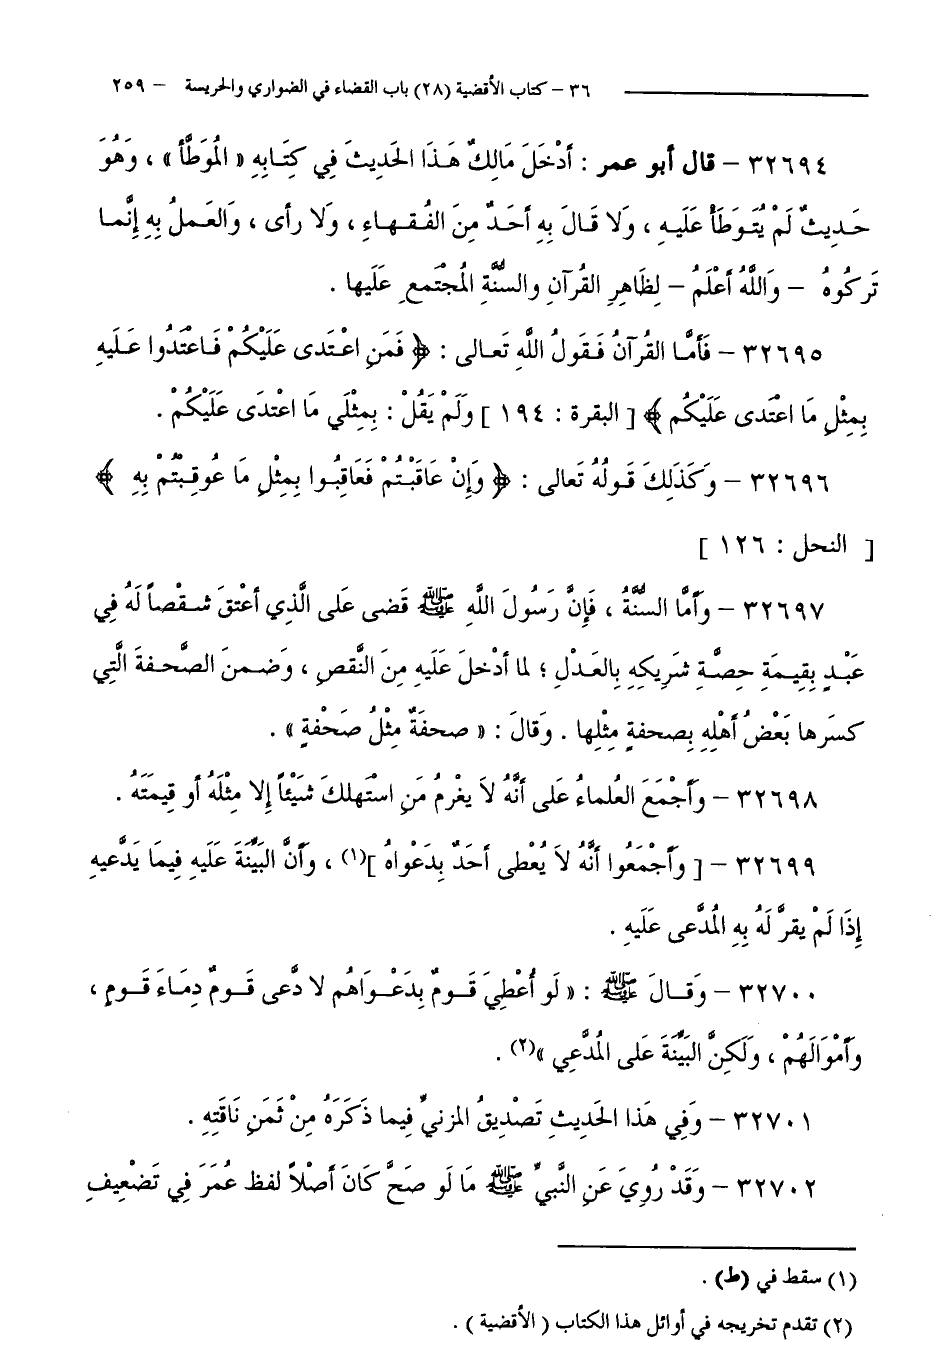 ٣٦ – كتاب الأقضية (٢٨) باب القضاء في الضواري والحريسة – ٢٥٩
٣٢٦٩٤ – قال أبو عمر : أَدْخَلَ مَالِكٌ هَذَا الحَدِيثَ فِي كِتَابِهِ « المُوَطَّأ » ، وَهُوَ
حَدِيثٌ لَمْ يُتَوَطَّأْ عَلَيهِ ، وَلا قَالَ بِهِ أَحَدٌ مِنَ الفُقهاءِ ، وَلا رأى ، وَالعَملُ بِهِ إِنَّما
تَركُوهُ – وَاللَّهُ أَعْلَمُ – لِظَاهِرِ القُرآنِ والسُّنَّةِ المُجْتَمعِ عَلَيها .
٣٢٦٩٥ – فَأَمَّا القُرآنُ فَقَولُ اللَّهِ تَعالى : ﴿ فَمَنِ اعْتَدى عَلَيكُمْ فَاعْتَدُوا عَلَيهِ
بِمِثْلِ مَا اعْتَدى عَلَيكُم ﴾ [ البقرة : ١٩٤ ] وَلَمْ يَقُلْ : بِمِثْلَي مَا اعْتَدَى عَلَيكُمْ .
٣٢٦٩٦ – وَكَذَلِكَ قَولُهُ تَعالى : ﴿ وَإِنْ عَاقَبْتُمْ فَعَاقِبُوا بِمِثْلِ مَا عُوقِبْتُمْ بِهِ ﴾
[ النحل : ١٢٦ ]
٣٢٦٩٧ – وَأَمَّا السُّنَّةُ ، فَإِنَّ رَسُولَ اللَّهِ ﷺ قَضى عَلى الَّذِي أَعْتقَ شقْصاً لَهُ فِي
عَبْدٍ بِقِيمَةِ حِصَّةِ شَرِيكِهِ بِالعَدْلِ ؛ لما أدْخلَ عَلَيهِ مِنَ النَّقصِ ، وَضمنَ الصَّحفةَ الَّتِي
كسَرها بَعْضُ أَهْلِهِ بِصحفةٍ مِثْلِها . وَقالَ : « صحفَةٌ مِثْلُ صَحْفَةٍ » .
٣٢٦٩٨ – وَأَجْمَعَ العُلماءُ عَلى أَنَّهُ لاَ يغْرمُ مَنِ اسْتَهلكَ شَيْئاً إِلا مِثْلَهُ أو قِيمَتَهُ .
٣٢٦٩٩ – [ وَأَجْمَعُوا أَنَّهُ لاَ يُعْطى أَحَدٌ بِدَعْواهُ ](١) ، وَأَنَّ البَيِّنَةَ عَلَيهِ فِيمَا يَدَّعيهِ
إِذَا لَمْ يقرَّ لَهُ بِهِ المُدَّعى عَلَيهِ .
٣٢٧٠٠ – وَقَالَ ﷺ : « لَو أُعْطِيَ قَومٌ بِدَعْوَاهُم لادَّعى قَومٌ دِمَاءَ قَومٍ ،
وَأَمْوَالَهُمْ ، وَلَكِنَّ البَيِّنَةَ عَلى المُدَّعِي »(٢) .
٣٢٧٠١ – وَفِي هَذَا الحَدِيثِ تَصْدِيقُ المزنيِّ فِيما ذَكَرَهُ مِنْ ثَمَنِ نَاقَتِهِ .
٣٢٧٠٢ – وَقَدْ رُوِيَ عَنِ النَّبيِّ ﷺ مَا لَو صَحَّ كَانَ أَصْلاً لفظ عُمَرَ فِي تَضْعِيفِ
(١) سقط في (ط) .
(٢) تقدم تخريجه في أوائل هذا الكتاب ( الأقضية ) .